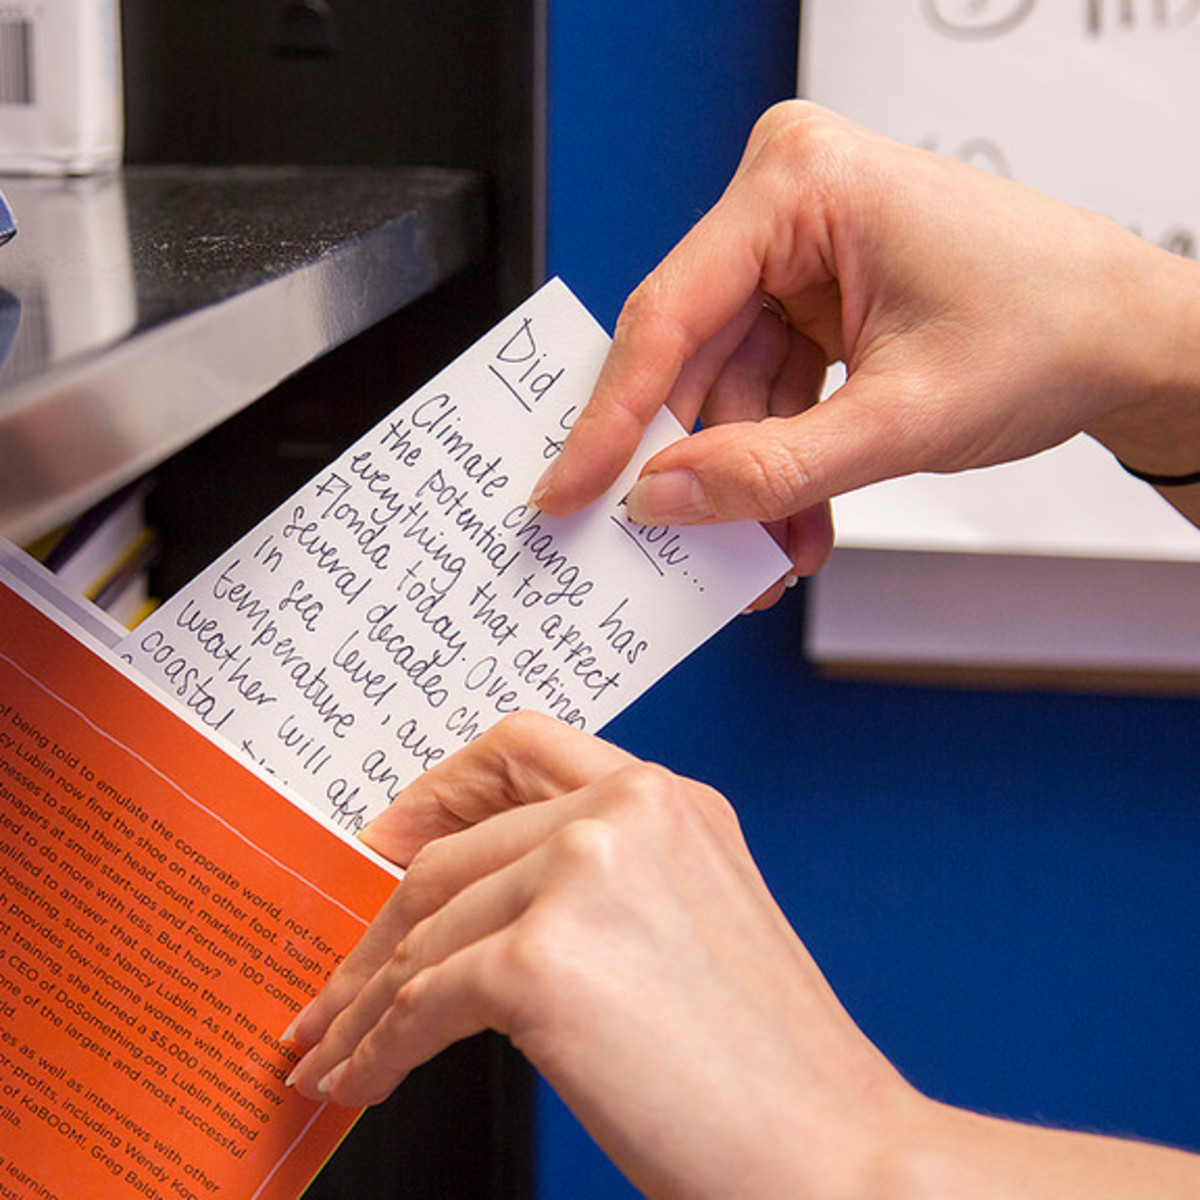 Did y know...
Climate change has
the potential to affect
everything that defines
Florida today. Over
several decades ch
in sea level, ave
temperature an
weather will affe
coastal
of being told to emulate the corporate world, not-for-
cy Lublin now find the shoe on the other foot. Tough
inesses to slash their head count, marketing budgets
anagers at small start-ups and Fortune 100 comp
ted to do more with less. But how?
alified to answer that question than the leader
hoestring, such as Nancy Lublin. As the found
h provides low-income women with interview
nt training, she turned a $5,000 inheritance
s CEO of DoSomething.org, Lublin helped
one of the largest and most successful
ld.
es as well as interviews with other
or-profits, including Wendy Kop
of KaBOOM!, Greg Baldw
illa.
learning